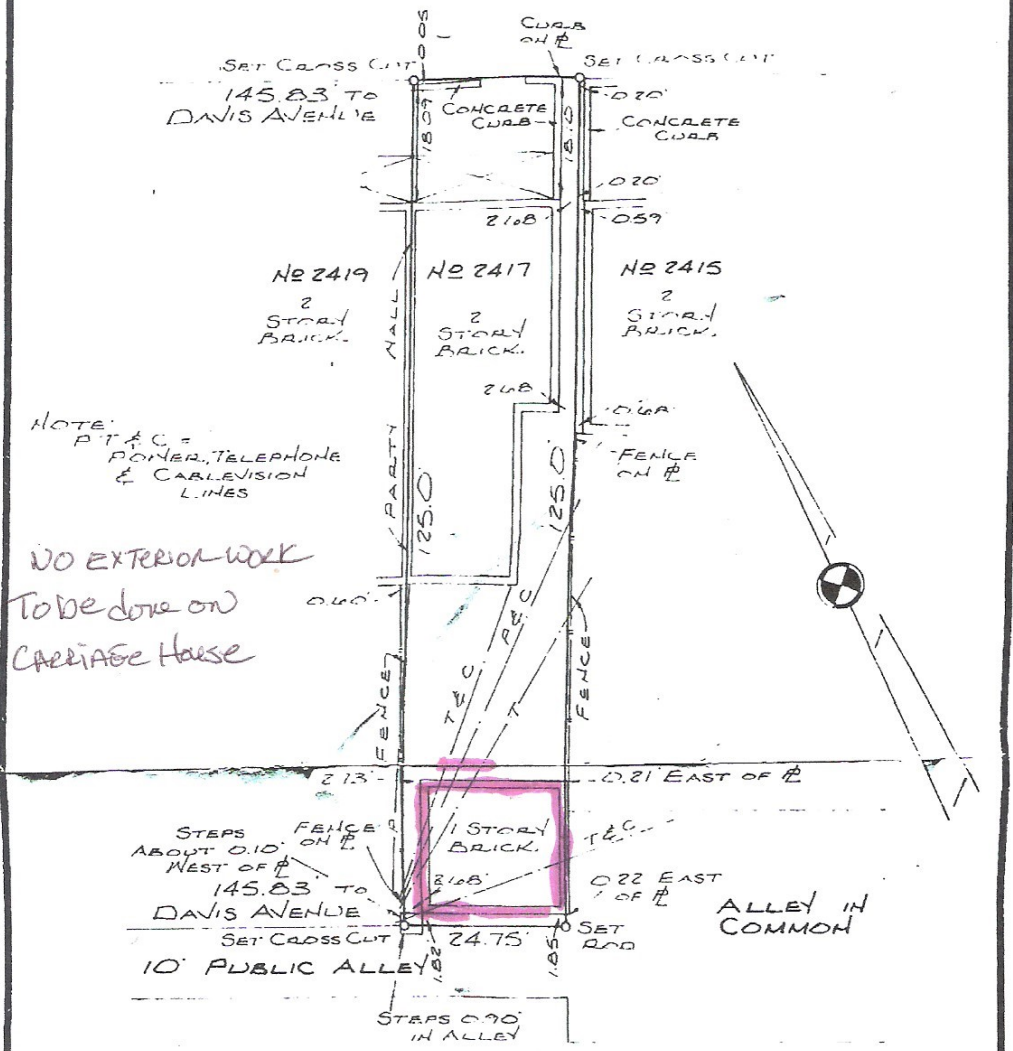 0.05
CURB
ON ℄
SET CROSS CUT
SET CROSS CUT
145.83' TO
DAVIS AVENUE
18.09
CONCRETE
CURB
18.0
0.20'
CONCRETE
CURB
0.20'
0.59
21.08
No 2419
2
STORY
BRICK.
PARTY WALL
No 2417
2
STORY
BRICK.
No 2415
2
STORY
BRICK.
2.68
0.68
FENCE
ON ℄
NOTE:
P.T & C =
POWER, TELEPHONE
& CABLEVISION
LINES
125.0'
125.0'
NO EXTERIOR WORK
To be done on
CARRIAGE House
0.60'
FENCE
T & C
P & C
T
FENCE
2.13'
0.21' EAST OF ℄
STEPS
ABOUT 0.10'
WEST OF ℄
FENCE
ON ℄
P
1 STORY
BRICK.
T & C
21.08'
0.22 EAST
OF ℄
145.83' TO
DAVIS AVENUE
SET CROSS CUT
24.75'
SET
ROD
ALLEY IN
COMMON
10' PUBLIC ALLEY
1.82'
1.85'
STEPS 0.90'
IN ALLEY